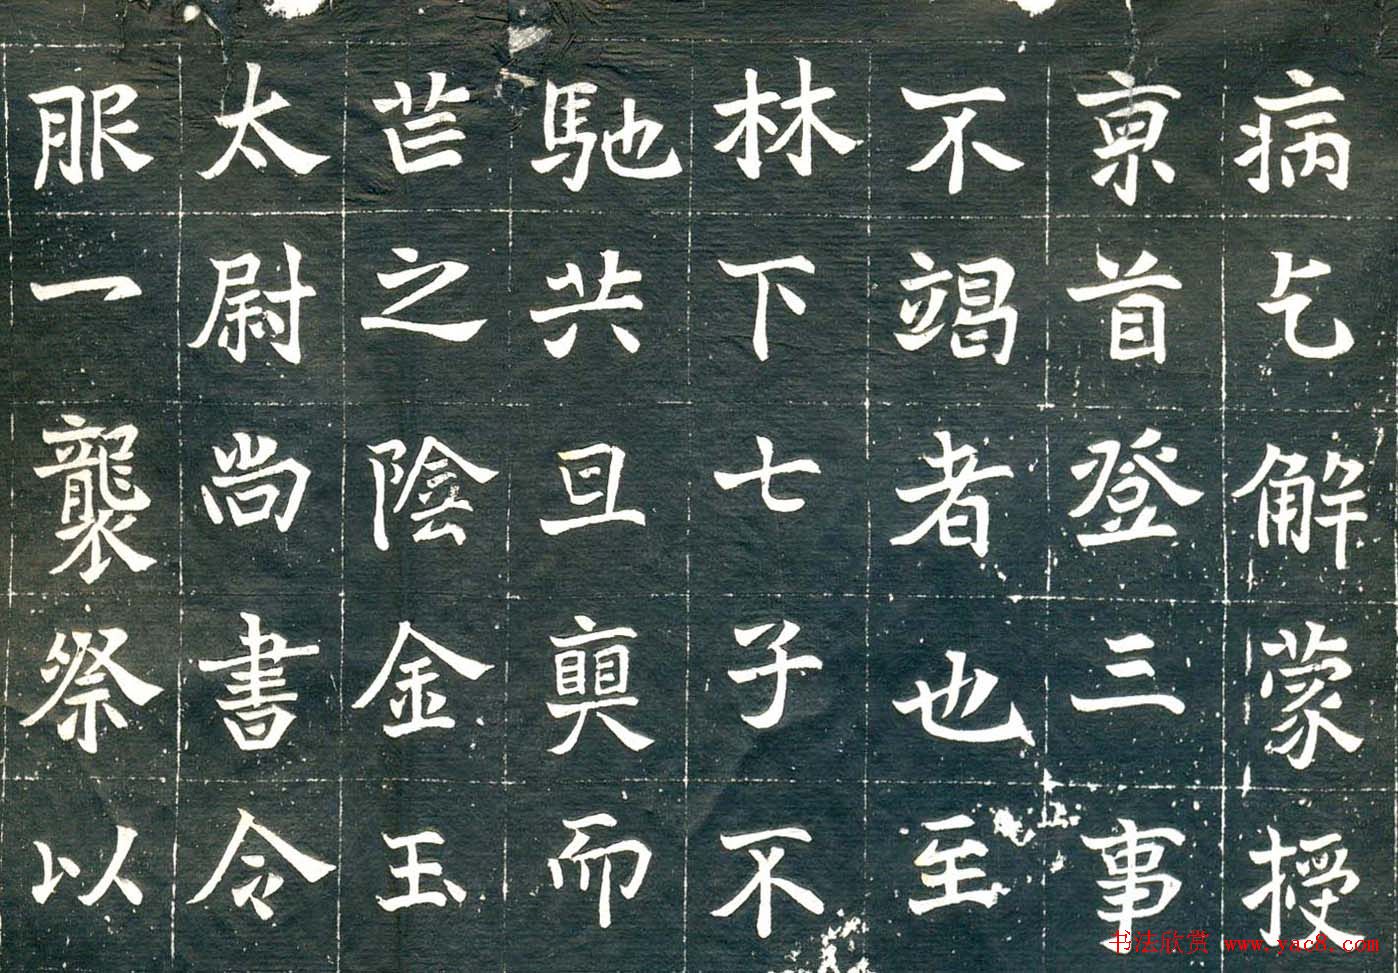 病乞解蒙授
亰首登三事
不竭者也至
林下七子不
馳共旦奭而
芒之陰金玉
太尉尚書令
服一襲祭以
书法欣赏 www.yac8.com